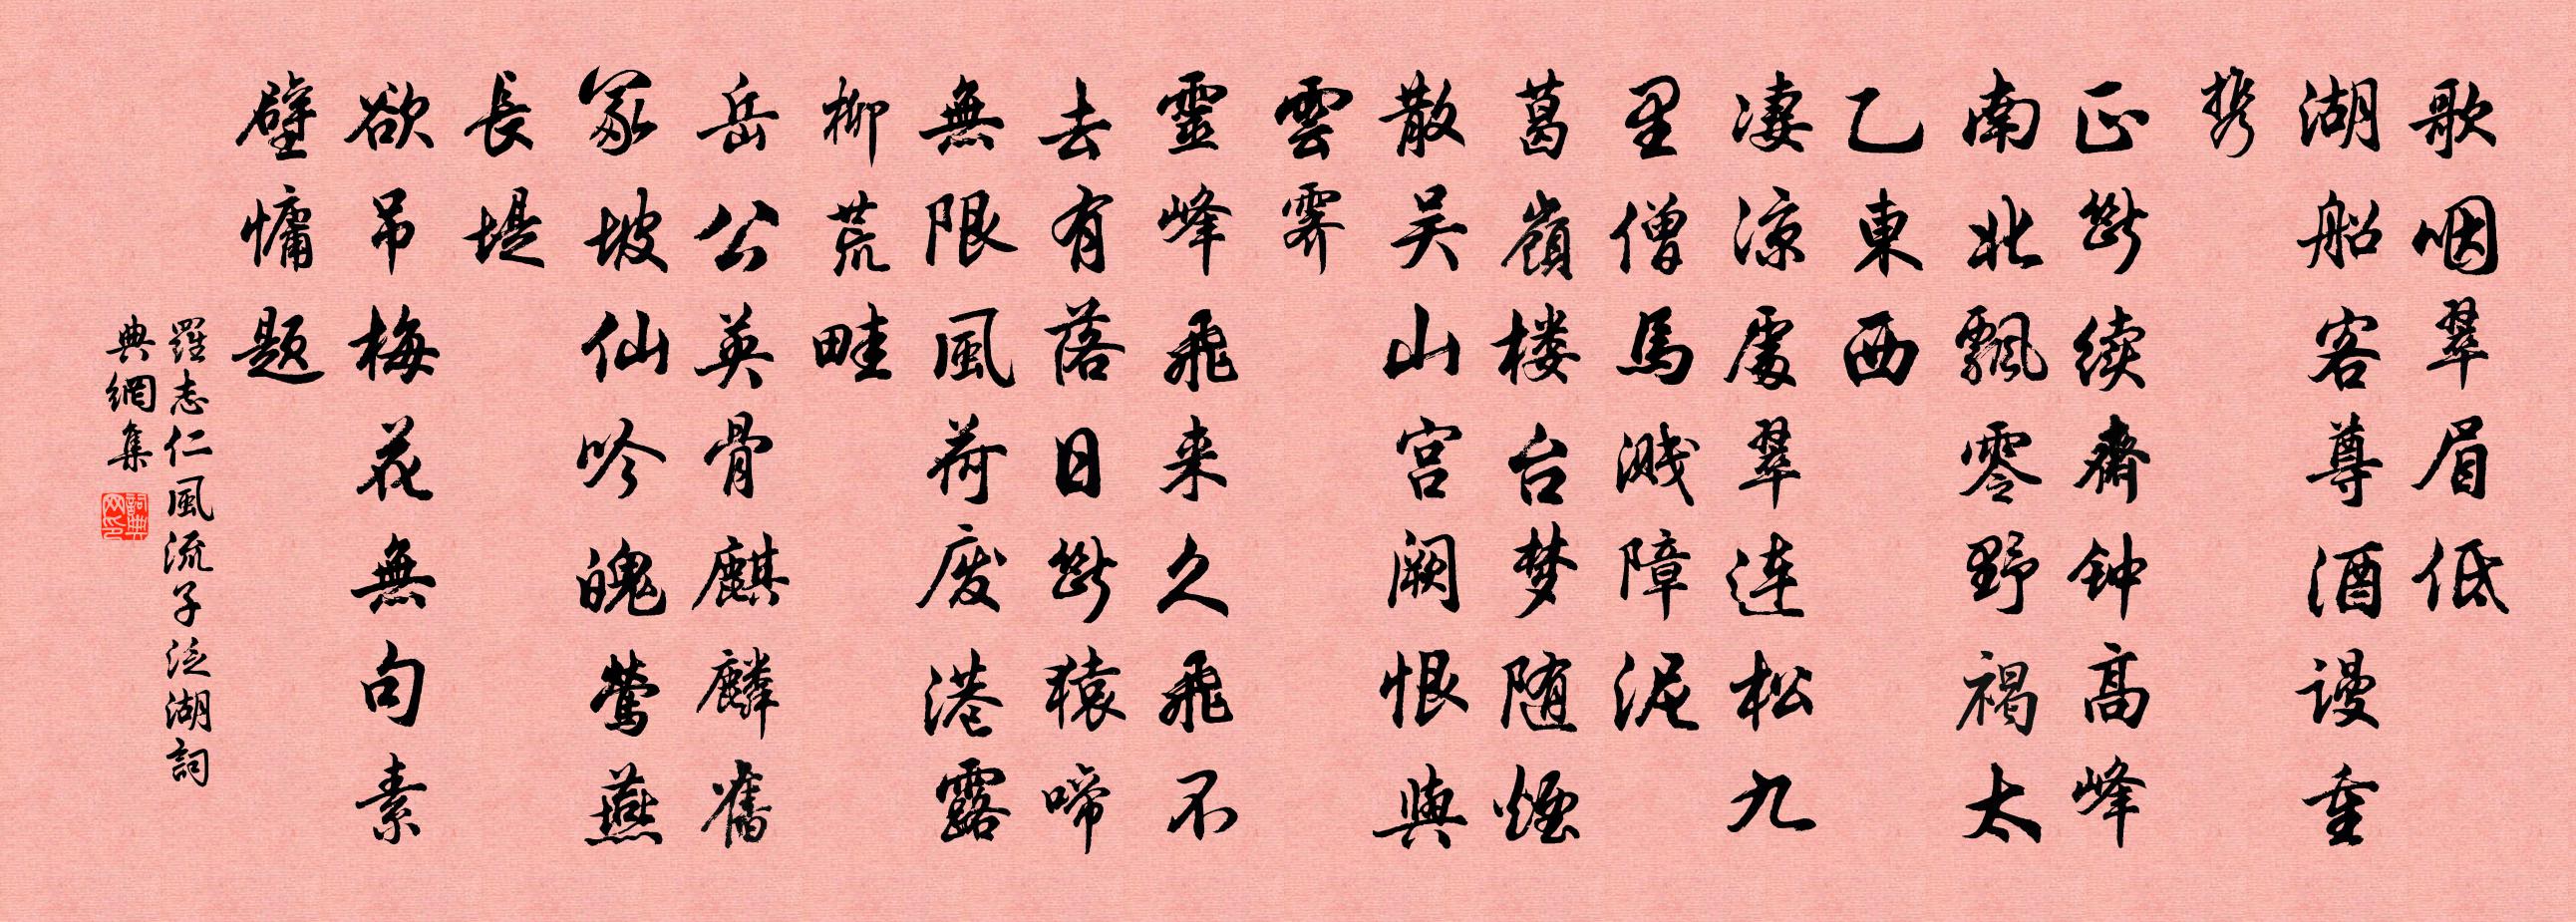 歌咽翠眉低
湖船客尊酒谩重
携
正断续斋钟高峰
南北飘零野褐太
乙東西
凄凉處翠连松九
里僧馬溅障泥
葛嶺楼台梦随煙
散吴山宫阙恨與
雲霽
靈峰飛来久飛不
去有落日断猿啼
無限風荷废港露
柳荒畦
岳公英骨麒麟舊
冢坡仙吟魄莺燕
長堤
欲吊梅花無句素
壁慵题
羅志仁風流子泛湖詞
典網集
詞典网印